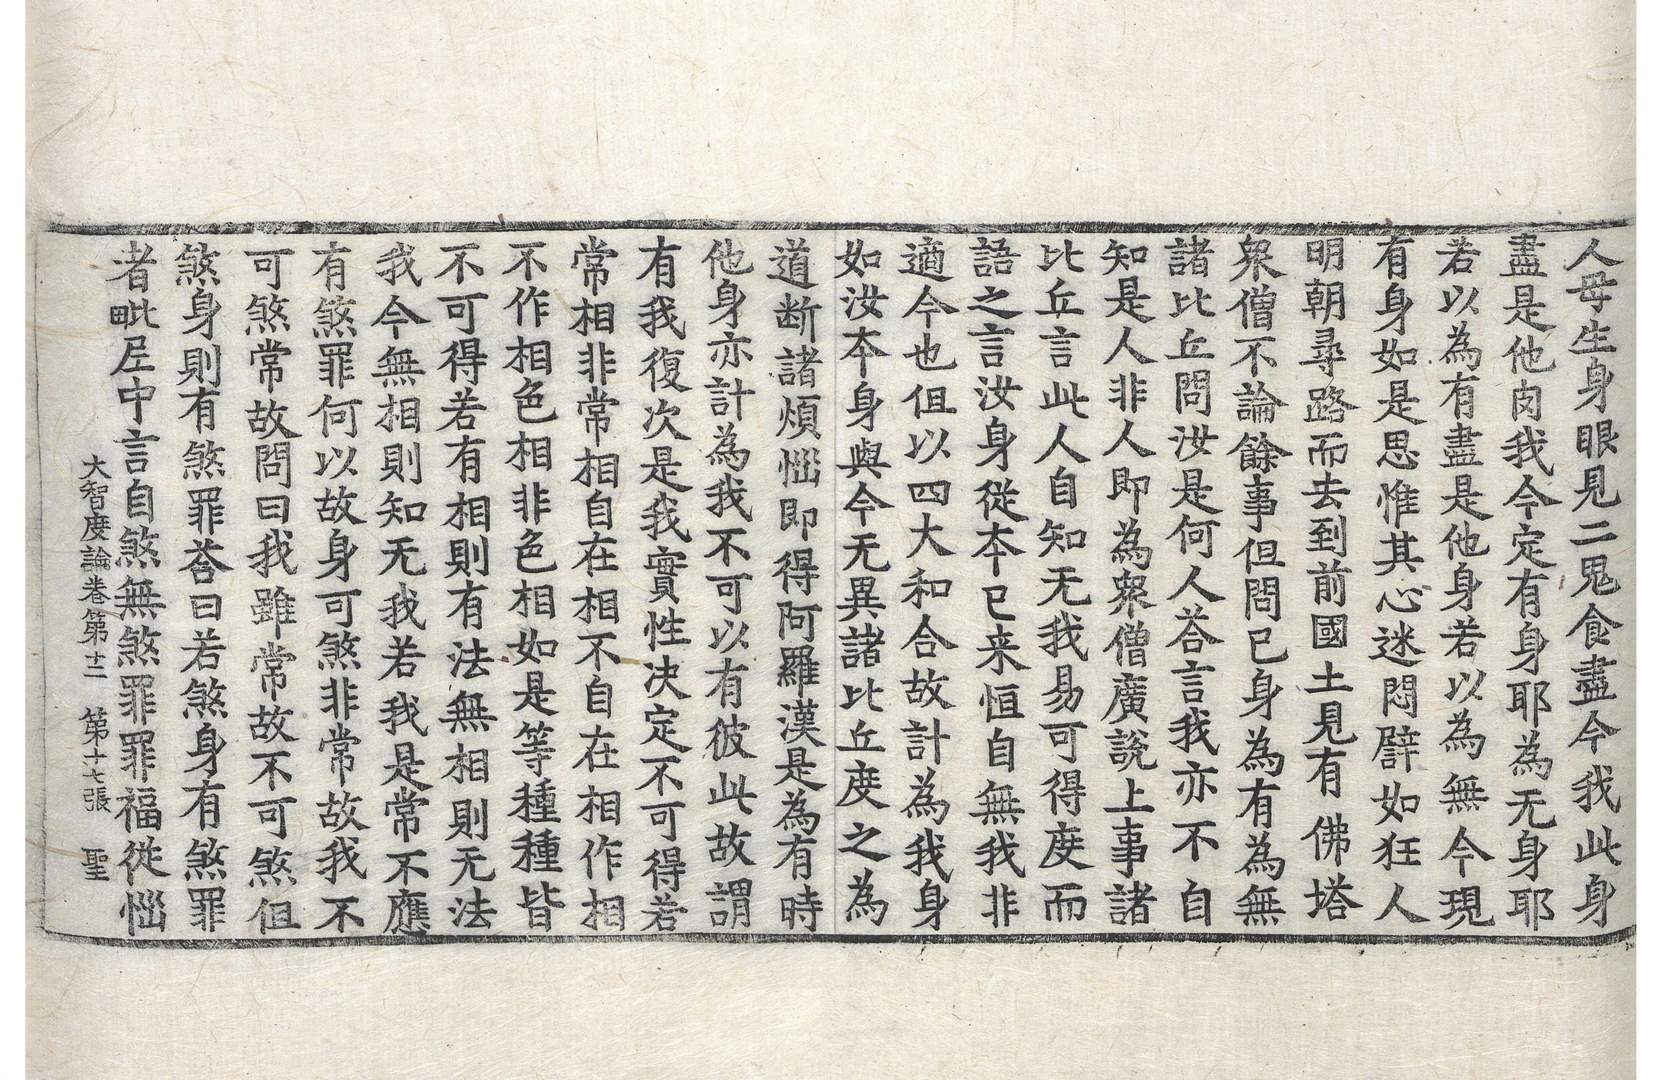 人母生身眼見二鬼食盡今我此身
盡是他肉我今定有身耶為无身耶
若以為有盡是他身若以為無今現
有身如是思惟其心迷悶譬如狂人
明朝尋路而去到前國土見有佛塔
衆僧不論餘事但問己身為有為無
諸比丘問汝是何人荅言我亦不自
知是人非人即為衆僧廣說上事諸
比丘言此人自知无我易可得度而
語之言汝身從夲已来恒自無我非
適今也但以四大和合故計為我身
如汝夲身與今无異諸比丘度之為
道断諸煩惱即得阿羅漢是為有時
他身亦計為我不可以有彼此故謂
有我復次是我實性决定不可得若
常相非常相自在相不自在相作相
不作相色相非色相如是等種種皆
不可得若有相則有法無相則无法
我今無相則知无我若我是常不應
有煞罪何以故身可煞非常故我不
可煞常故問曰我雖常故不可煞但
煞身則有煞罪荅曰若煞身有煞罪
者毗尼中言自煞無煞罪罪福從惱
大智度論卷第十二　第十七張　聖